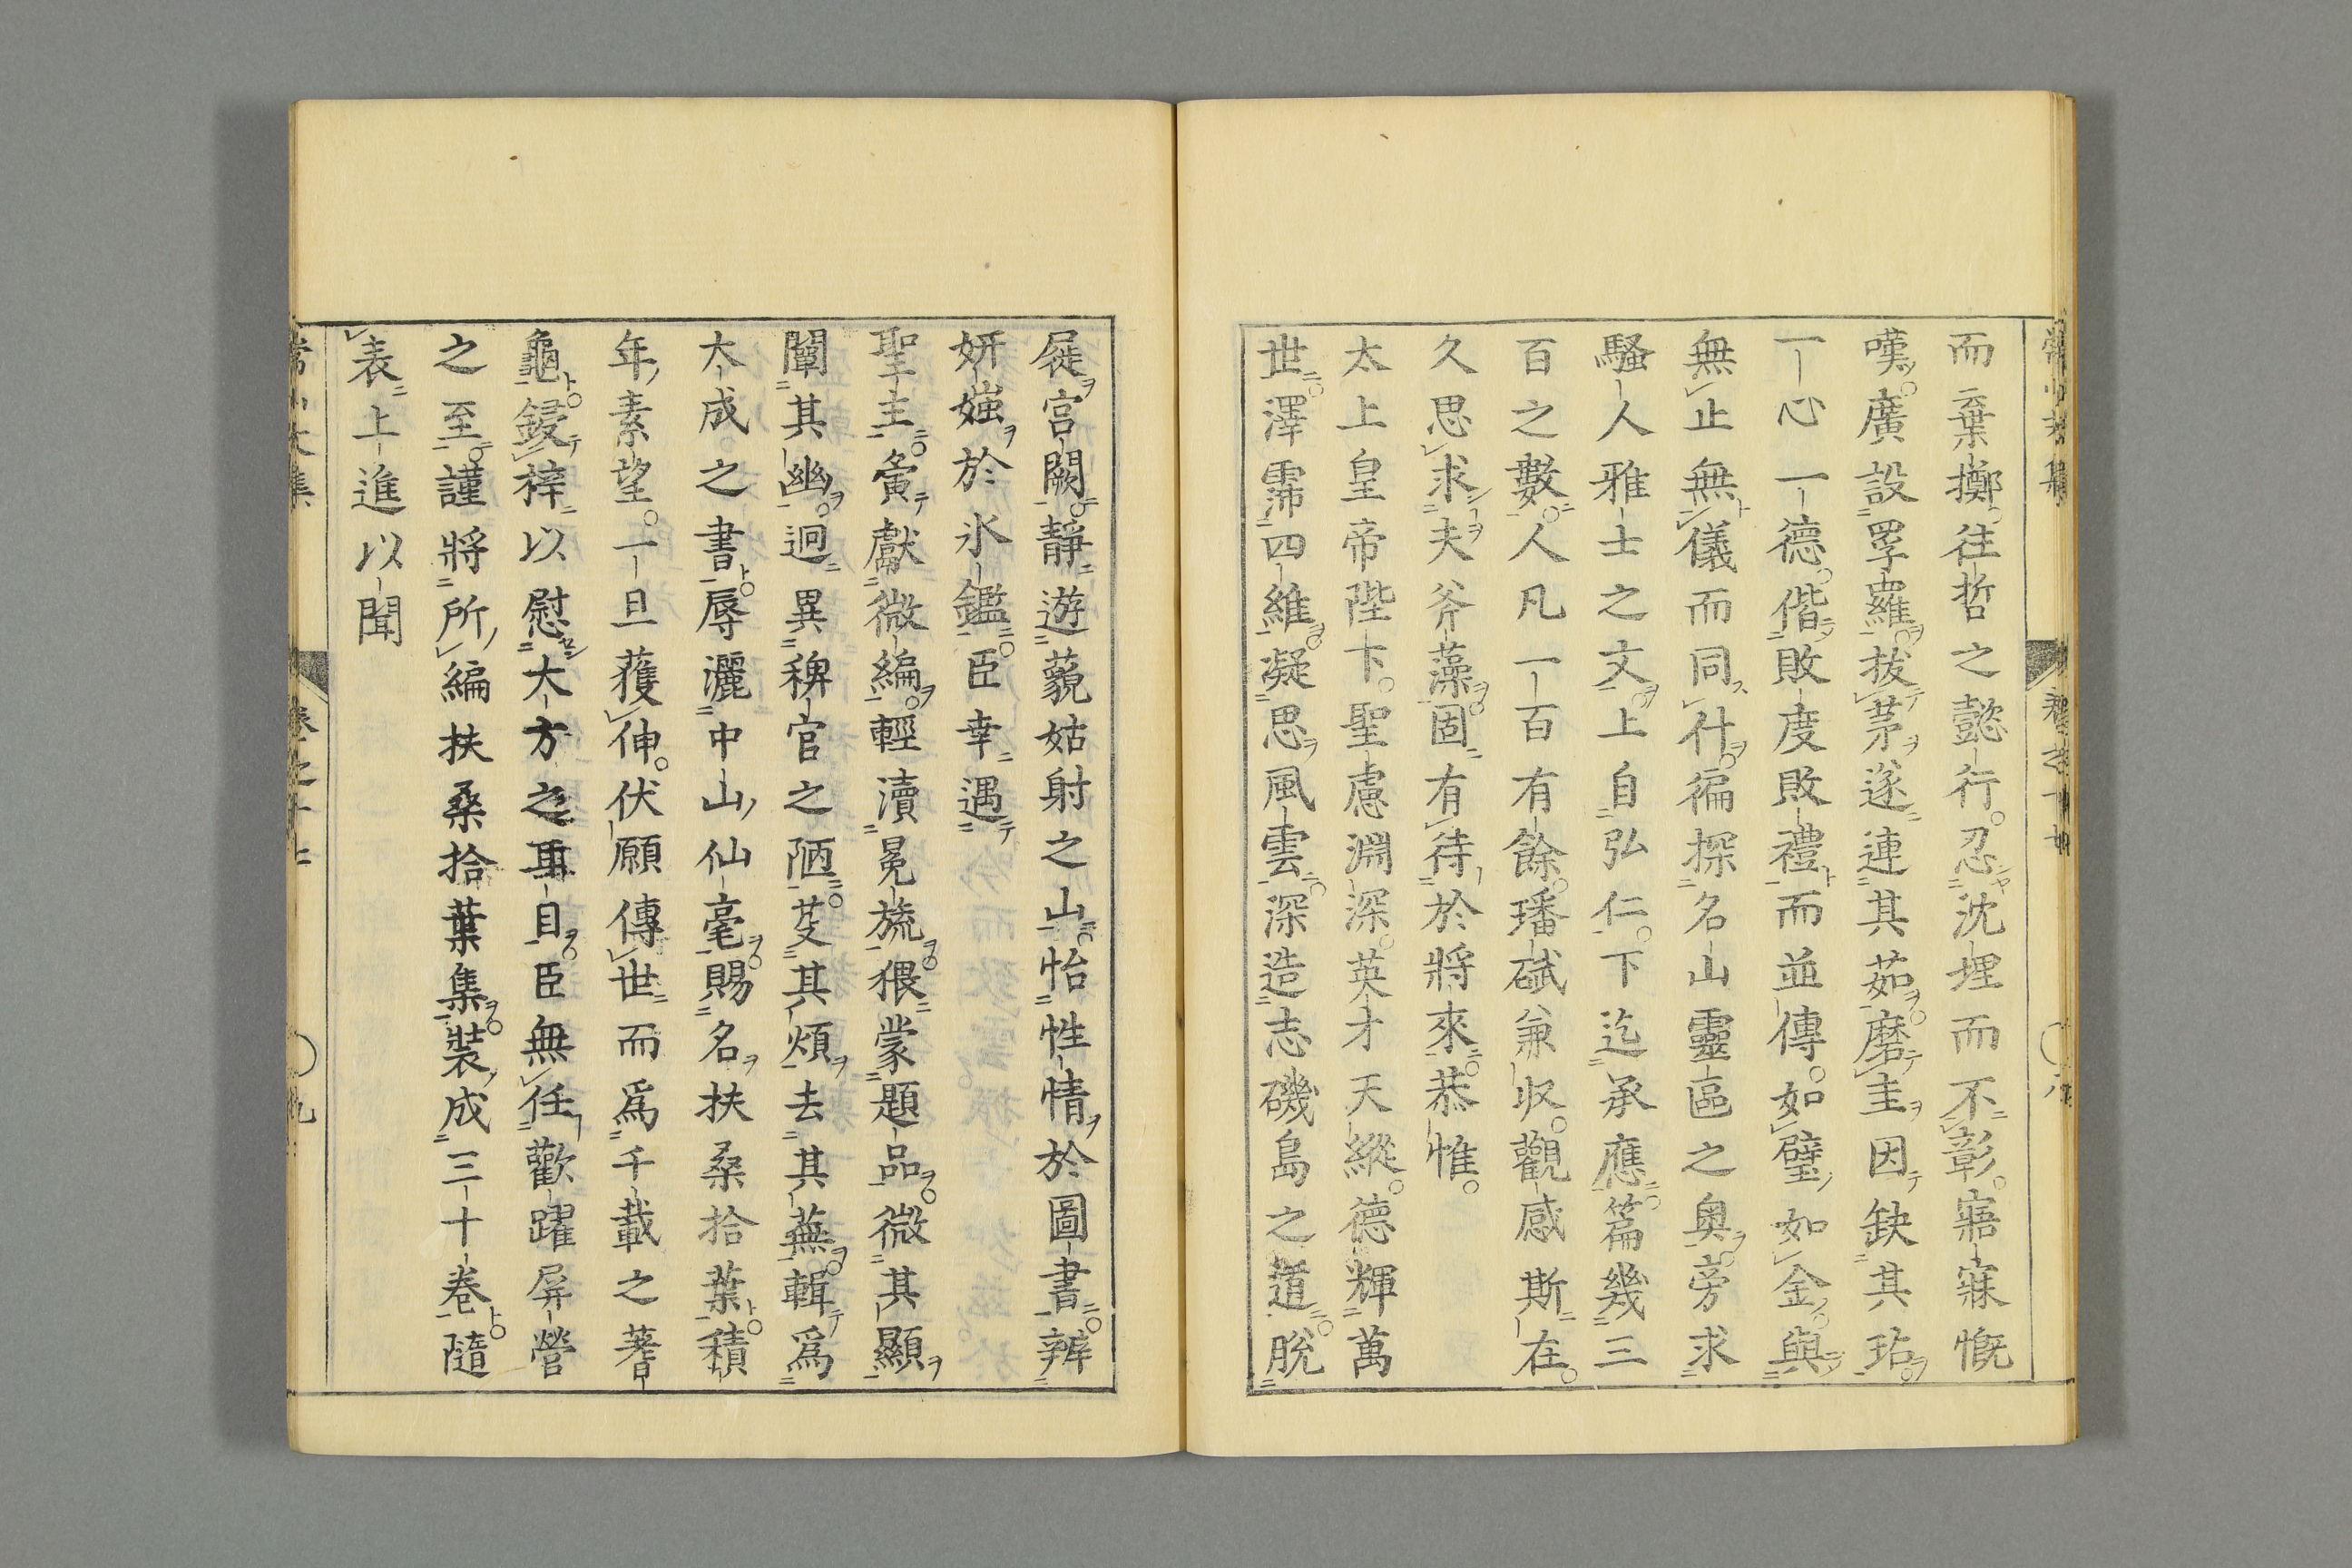 而棄擲往哲之懿行忍沈埋而不彰寤寐慨
嘆廣設罦羅拔茅遂連其茹磨圭因缺其玷
一心一德偕敗度敗禮而並傳如璧如金與
無止無儀而同什徧探名山靈區之奥旁求
騷人雅士之文上自弘仁下迄承應篇幾三
百之數人凡一百有餘璠碔兼收觀感斯在
久思求夫斧藻固有待於將來恭惟
太上皇帝陛下聖慮淵深英才天縱德輝萬
世澤霈四維凝思風雲深造志磯島之道脫
屣宮闕靜遊藐姑射之山怡性情於圖書辨
妍媸於氷鑑臣幸遇
聖主夤獻微編輕瀆冕旒猥蒙題品微其顯
闡其幽迥異稗官之陋芟其煩去其蕪輯爲
大成之書辱灑中山仙毫賜名扶桑拾葉積
年素望一旦獲伸伏願傳世而爲千載之蓍
龜鋟梓以慰大方之耳目臣無任歡躍屏營
之至謹將所編扶桑拾葉集裝成三十卷隨
表上進以聞
卷之十七